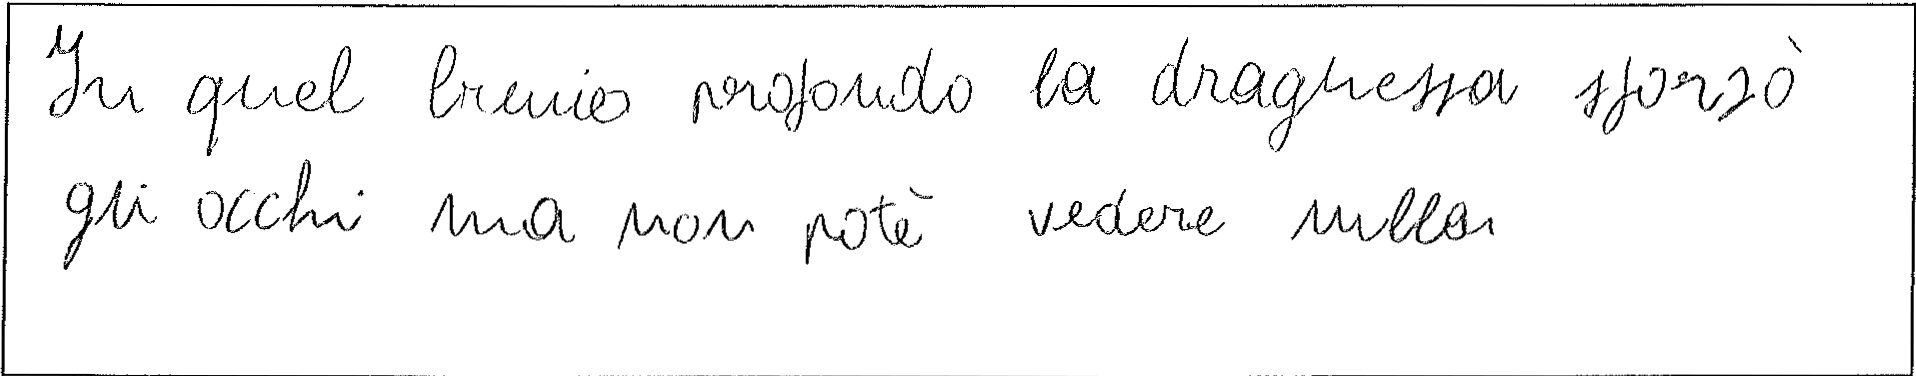 In quel profondo la draghessa sforzò
gli occhi ma non potè vedere nulla